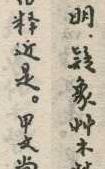 明.疑象艸木
释近是。甲文